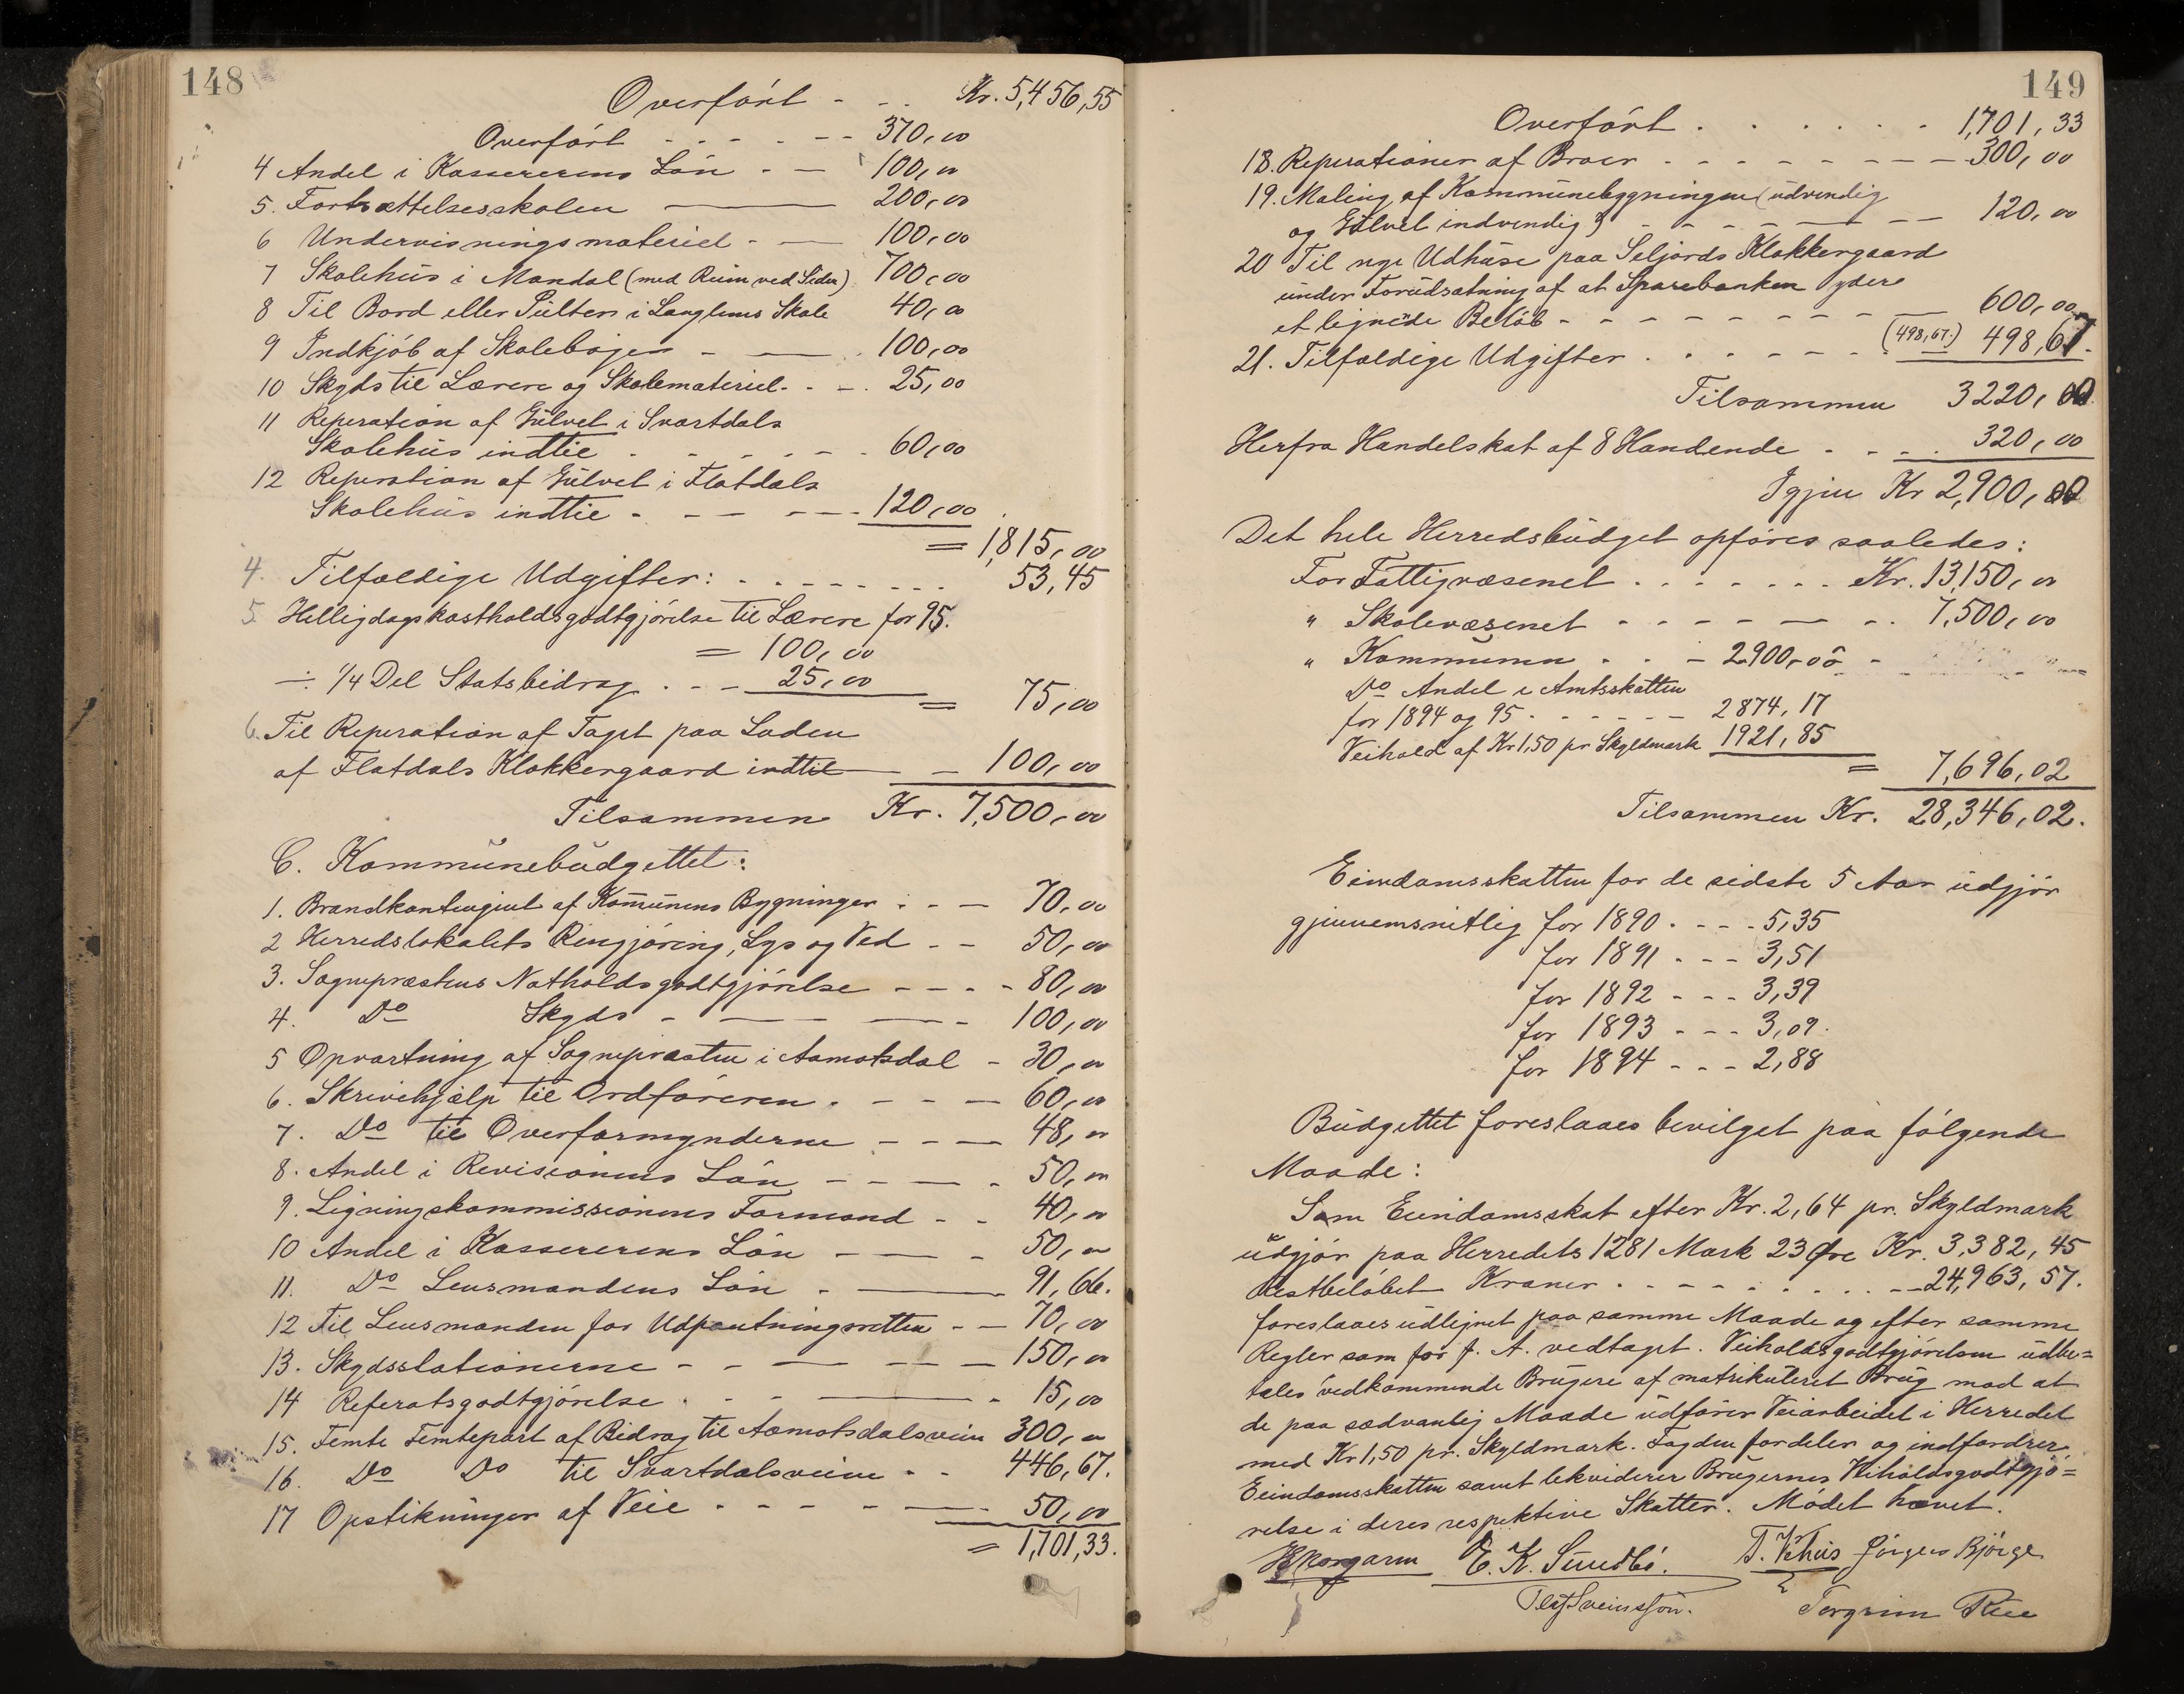 148
Overført - - - Kr. 5,456,55
Overført - - - - - - 370,00
4 Andel i Kassererens Løn - - 100,00
5. Fortsættelsesskolen 200,00
6 Undervisningsmateriel - - 100,00
7 Skolehus i Mandal (med Ruim ved Siden) 700,00
8 Til Bord eller Pulter i Langlims Skole 40,00
9 Indkjøb af Skolebøger - - 100,00
10 Skyds til Lærere og Skolemateriel - - 25,00
11 Reperation af Gulvet i Svartdals
Skolehus indtil - - - - - - 60,00
12 Reperation af Gulvet i Flatdals
Skolehus indtil - - - - - 120,00
= 1,815,00
4. Tilfældige Udgifter: - - - - - - 53,45
5. Helligdagskostholdsgodtgjørelse til Lærere for 95.
= 100,00
÷ 1/4 Del Statsbidrag - - - 25,00 = 75,00
6. Til Reperation af Taget paa Laden
af Flatdals Klokkergaard indtil - 100,00
Tilsammen Kr. 7,500,00
C. Kommünebüdgettet:
1. Brandkontingent af Komünens Bygninger - - - 70,00
2 Herredslokalets Rengjøring, Lys og Ved - - 50,00
3. Sognepræstens Natholdsgodtgjørelse - - - - 80,00
4. Do Skyds - - - - 100,00
5 Opvartning af Sognepræsten i Aamotsdal - 30,00
6. Skrivehjælp til Ordføreren - - - - 60,00
7. Do til Overformynderne - - - 48,00
8. Andel i Revisionens Løn - - - - 50,00
9. Ligningskommissionens Formand - - 40,00
10 Andel i Kassererens Løn - - - 50,00
11. Do Lensmandens Løn - - 91,66.
12 Til Lensmanden for Udpantningsretten - - 70,00
13. Skydsstationerne - - - - - - 150,00
14 Referatsgodtgjørelse - - - - 15,00
15. Femte Femtepart af Bidrag til Aamotsdalsveien 300,00
16. Do Do til Svartdalsveien - - 446,67.
17 Opstikninger af Veie - - - - - 50,00
= 1,701,33.
149
Overført - - - - - - 1,701,33
18. Reperationer af Broer - - - - - - - - 300,00
19. Maling af Kommünebygningen (üdvendig
og Gülvet indvendig) - - - - - - 120,00
20 Til nye Udhüse paa Seljords Klokkergaard
ünder Forüdsætning af at Sparebanken yder
et lignede Beløb - - - - - - - - 600,00
21. Tilfældige Udgifter - - - - - - (498,67.) 498,67.
Tilsammen 3220,00
Herfra Handelskat af 8 Handende - - - - 320,00
Igjen Kr 2,900,00
Det hele Herredsbüdget opføres saaledes:
For Fattigvæsenet - - - - - - - Kr. 13,150,00
" Skolevæsenet - - - - - - - 7,500,00
" Kommunen - - - 2900,00 -
Do Andel i Amtsskatten
for 1894 og 95 - - - - - - 2874,17
Veihold af Kr 1,50 pr Skyldmark 1921,85
= 7,696,02
Tilsammen Kr. 28,346,02.
Eiendomsskatten for de sidste 5 Aar üdgjør
gjennemsnitlig for 1890 - - - - 5,35
for 1891 - - - 3,51
for 1892 - - - 3,39
for 1893 - - - 3,09.
for 1894 - - - 2,88
Büdgettet foreslaaes bevilget paa følgende
Maade:
Som Eiendomsskat efter Kr. 2,64 pr. Skyldmark
üdgjør paa Herredets 1281 Mark 23 Øre Kr. 3,382,45
Restbeløbet Kroner - - - - - - - - - 24,963,57.
foreslaaes üdlignet paa samme Maade og efter samme
Regler som for f. A. vedtaget. Veiholdsgodtgjørelsen üdbe=
tales vedkommende Brügere af matriküleret Brüg mod at
de paa sædvanlig Maade üdfører Veiarbeidet i Herredet
med Kr 1,50 pr. Skyldmark. Fogden fordeler og indfordrer
Eiendomsskatten samt lekviderer Brügernes Veiholdsgodtgjø=
relse i deres respektive Skatter. Mødet hævet.
E. K. Sundbø. T. Vehus Jørgen Bjørge
Olaf Sveinsson. Torgrim Rue